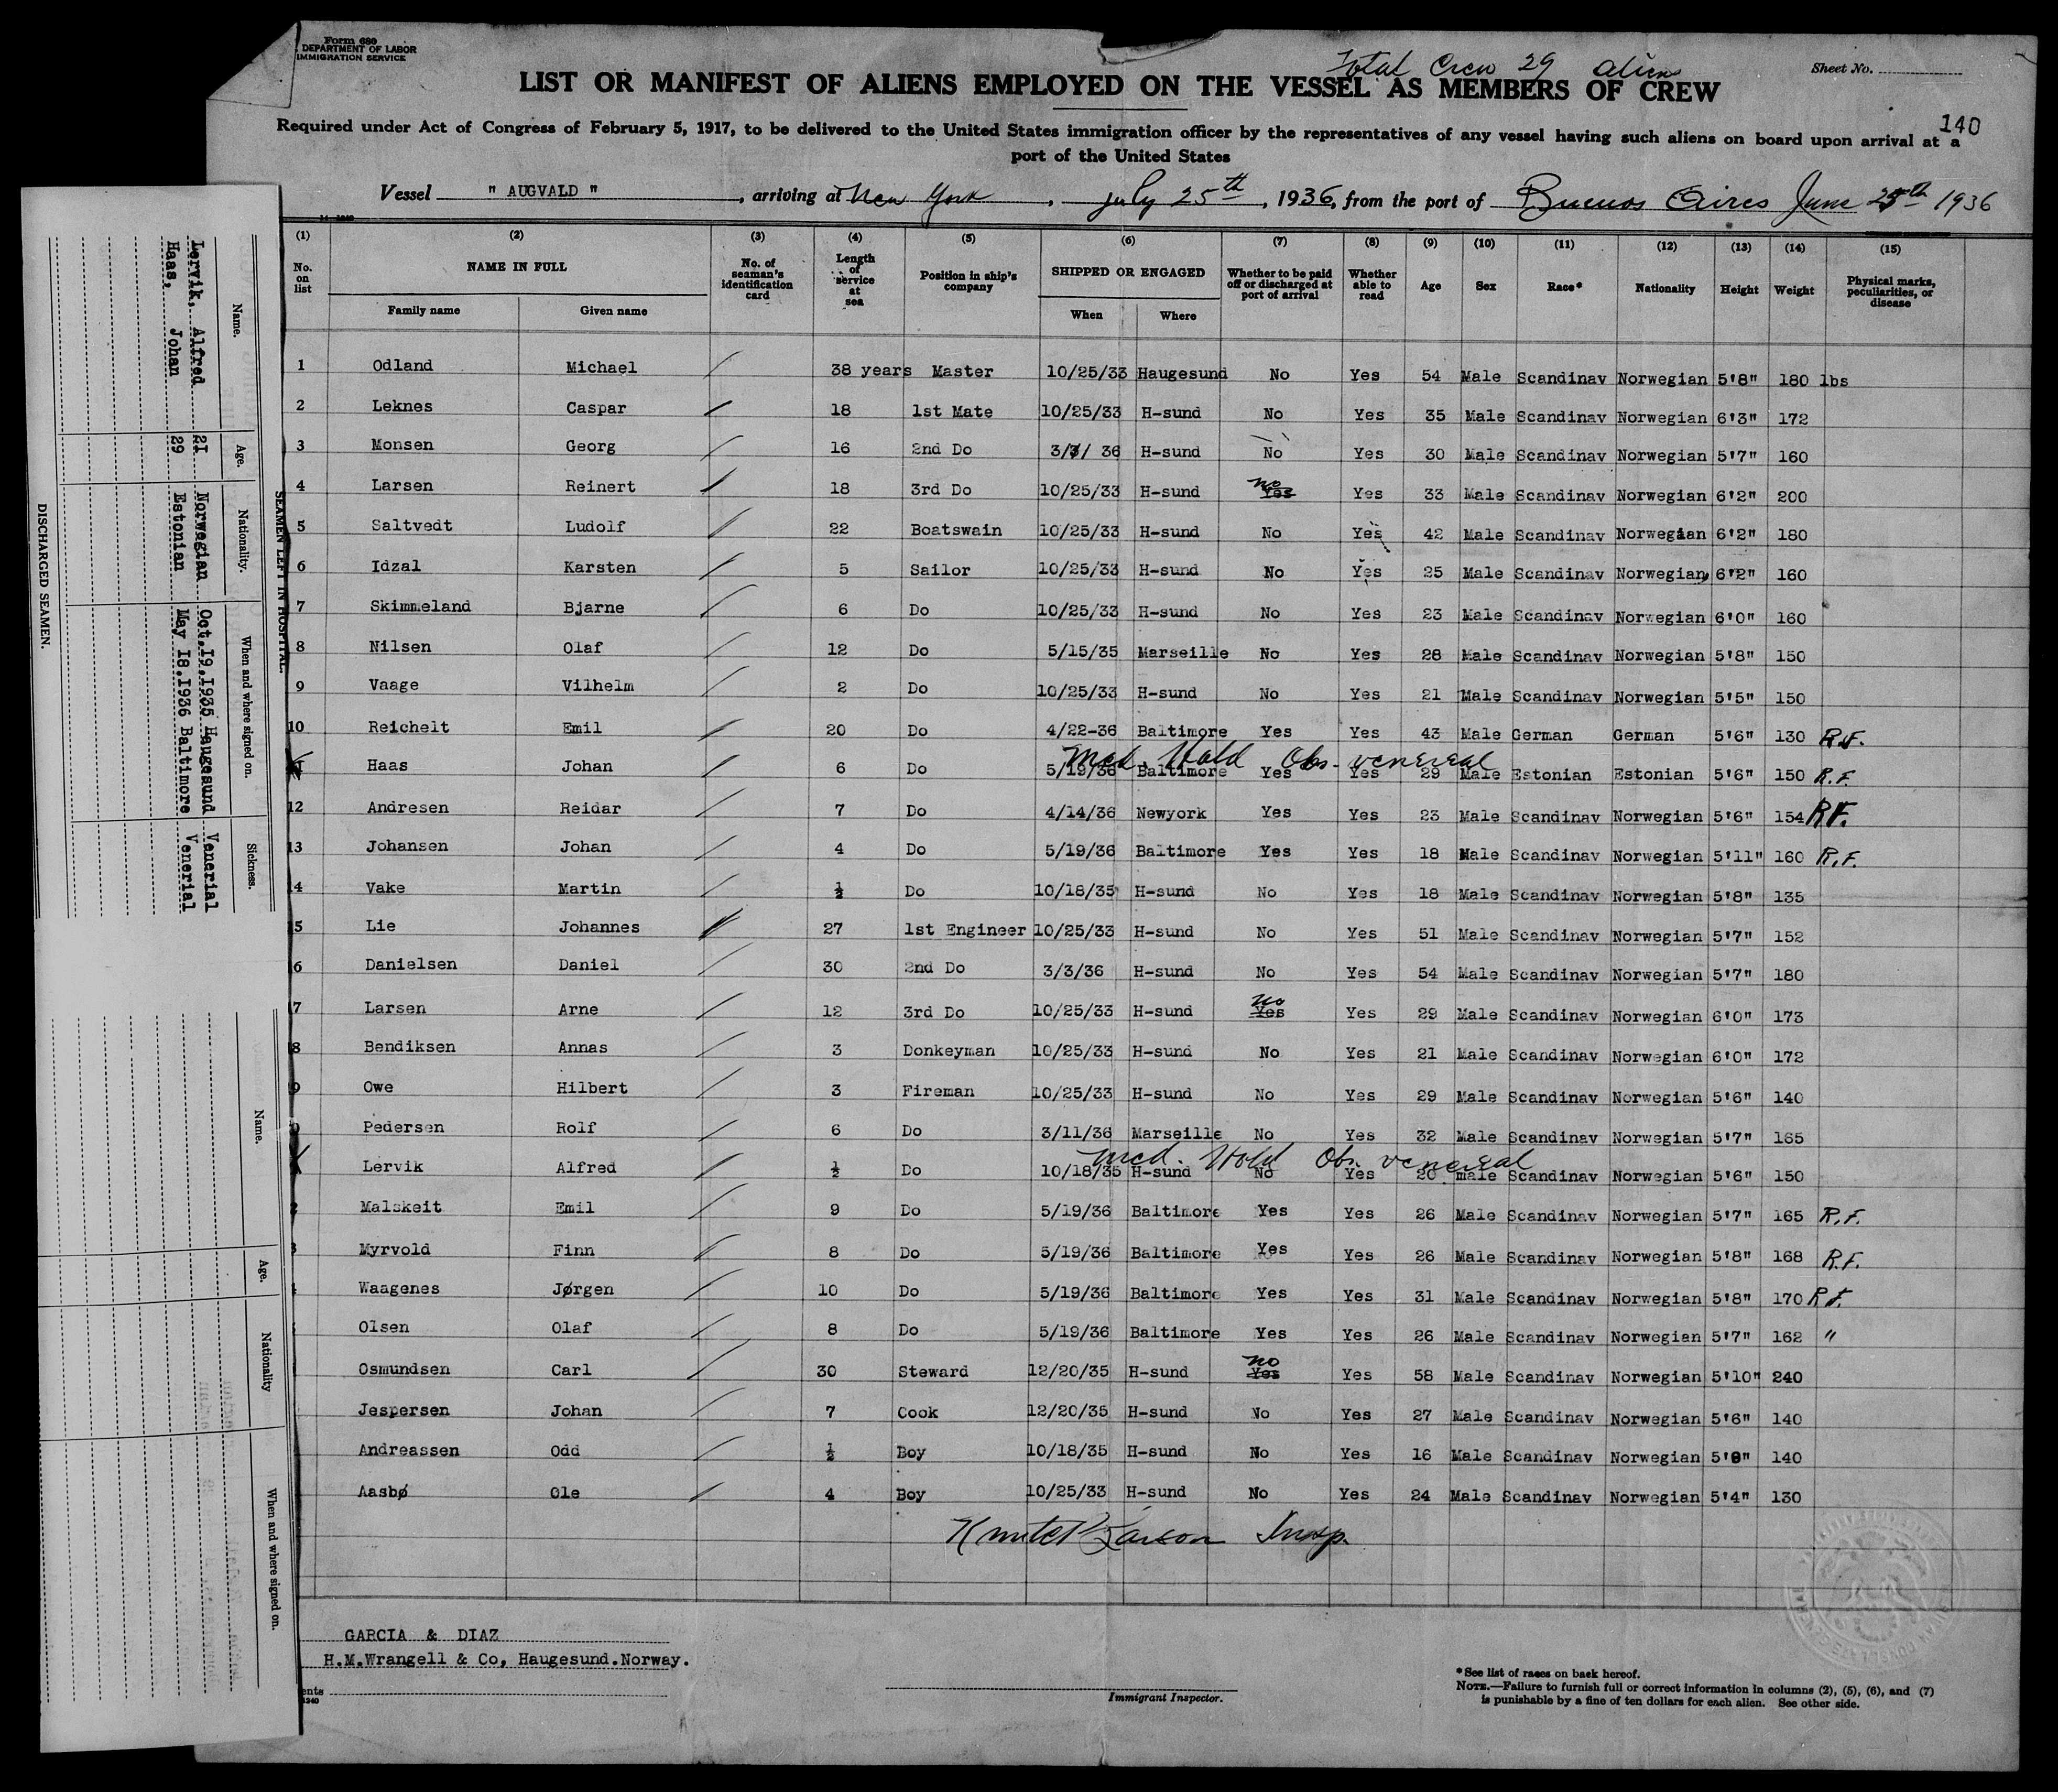 Form 680
DEPARTMENT OF LABOR
IMMIGRATION SERVICE
Total Crew 29 alien
Sheet No.
LIST OR MANIFEST OF ALIENS EMPLOYED ON THE VESSEL AS MEMBERS OF CREW
140
Required under Act of Congress of February 5, 1917, to be delivered to the United States immigration officer by the representatives of any vessel having such aliens on board upon arrival at a
port of the United States
Vessel " AUGVALD ", arriving at New York, July 25th, 1936, from the port of Buenos Aires June 25th 1936
14—1240
(1) (2) (3) (4) (5) (6) (7) (8) (9) (10) (11) (12) (13) (14) (15)
No. on list NAME IN FULL No. of seaman's identification card Length of service at sea Position in ship's company SHIPPED OR ENGAGED Whether to be paid off or discharged at port of arrival Whether able to read Age Sex Race* Nationality Height Weight Physical marks, peculiarities, or disease
Family name Given name When Where
1 Odland Michael 38 years Master 10/25/33 Haugesund No Yes 54 Male Scandinav Norwegian 5'8" 180 lbs
2 Leknes Caspar 18 1st Mate 10/25/33 H-sund No Yes 35 Male Scandinav Norwegian 6'3" 172
3 Monsen Georg 16 2nd Do 3/3/ 36 H-sund No Yes 30 Male Scandinav Norwegian 5'7" 160
4 Larsen Reinert 18 3rd Do 10/25/33 H-sund no Yes Yes 33 Male Scandinav Norwegian 6'2" 200
5 Saltvedt Ludolf 22 Boatswain 10/25/33 H-sund No Yes 42 Male Scandinav Norwegian 6'2" 180
6 Idzal Karsten 5 Sailor 10/25/33 H-sund No Yes 25 Male Scandinav Norwegian 6'2" 160
7 Skimmeland Bjarne 6 Do 10/25/33 H-sund No Yes 23 Male Scandinav Norwegian 6'0" 160
8 Nilsen Olaf 12 Do 5/15/35 Marseille No Yes 28 Male Scandinav Norwegian 5'8" 150
9 Vaage Vilhelm 2 Do 10/25/33 H-sund No Yes 21 Male Scandinav Norwegian 5'5" 150
10 Reichelt Emil 20 Do 4/22-36 Baltimore Yes Yes 43 Male German German 5'6" 130 R.F.
Med. Hold Obs. venereal
Haas Johan 6 Do 5/19/36 Baltimore Yes Yes 29 Male Estonian Estonian 5'6" 150 R.F.
12 Andresen Reidar 7 Do 4/14/36 Newyork Yes Yes 23 Male Scandinav Norwegian 5'6" 154 R.F.
13 Johansen Johan 4 Do 5/19/36 Baltimore Yes Yes 18 Male Scandinav Norwegian 5'11" 160 R.F.
4 Vake Martin ½ Do 10/18/35 H-sund No Yes 18 Male Scandinav Norwegian 5'8" 135
5 Lie Johannes 27 1st Engineer 10/25/33 H-sund No Yes 51 Male Scandinav Norwegian 5'7" 152
6 Danielsen Daniel 30 2nd Do 3/3/36 H-sund No Yes 54 Male Scandinav Norwegian 5'7" 180
7 Larsen Arne 12 3rd Do 10/25/33 H-sund no Yes Yes 29 Male Scandinav Norwegian 6'0" 173
8 Bendiksen Annas 3 Donkeyman 10/25/33 H-sund No Yes 21 Male Scandinav Norwegian 6'0" 172
9 Owe Hilbert 3 Fireman 10/25/33 H-sund No Yes 29 Male Scandinav Norwegian 5'6" 140
Pedersen Rolf 6 Do 3/11/36 Marseille No Yes 32 Male Scandinav Norwegian 5'7" 165
med. Hold Obs. venereal
Lervik Alfred ½ Do 10/18/35 H-sund No Yes 20 male Scandinav Norwegian 5'6" 150
Malskeit Emil 9 Do 5/19/36 Baltimore Yes Yes 26 Male Scandinav Norwegian 5'7" 165 R.F.
Myrvold Finn 8 Do 5/19/36 Baltimore Yes Yes 26 Male Scandinav Norwegian 5'8" 168 R.F.
Waagenes Jørgen 10 Do 5/19/36 Baltimore Yes Yes 31 Male Scandinav Norwegian 5'8" 170 R.F.
Olsen Olaf 8 Do 5/19/36 Baltimore Yes Yes 26 Male Scandinav Norwegian 5'7" 162 "
Osmundsen Carl 30 Steward 12/20/35 H-sund no Yes Yes 58 Male Scandinav Norwegian 5'10" 240
Jespersen Johan 7 Cook 12/20/35 H-sund No Yes 27 Male Scandinav Norwegian 5'6" 140
Andreassen Odd ½ Boy 10/18/35 H-sund No Yes 16 Male Scandinav Norwegian 140
Aasbø Ole 4 Boy 10/25/33 H-sund No Yes 24 Male Scandinav Norwegian 5'4" 130
Larson Insp.
GARCIA & DIAZ
H.M.Wrangell & Co, Haugesund.Norway.
ents
1240
Immigrant Inspector.
*See list of races on back hereof.
NOTE.—Failure to furnish full or correct information in columns (2), (5), (6), and (7)
is punishable by a fine of ten dollars for each alien. See other side.
SEAMEN LEFT IN HOSPITAL.
Name. Age. Nationality. When and where signed on. Sickness.
Lervik, Alfred 2I Norwegian Oct.I9.I935 Haugesund Venerial
Haas, Johan 29 Estonian May I8.I936 Baltimore Venerial
DISCHARGED SEAMEN.
Name. Age. Nationality When and where signed on.